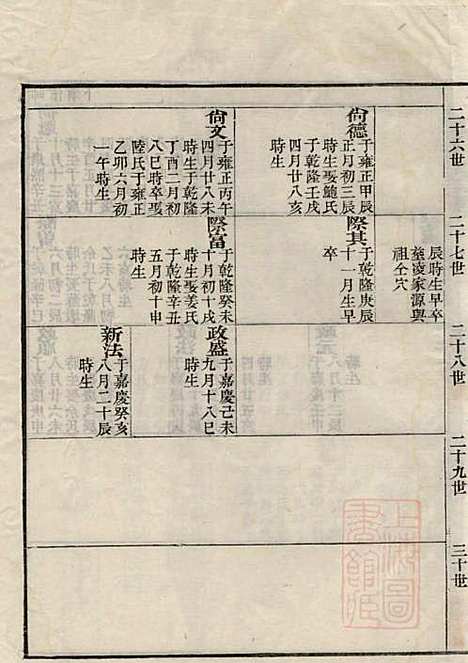 二十六世
尙德
于雍正甲辰
正月初三辰
時生娶鮑氏
于乾隆壬戌
四月廿八亥
時生
尙文
于雍正丙午
四月廿八未
時生娶于氏
丁酉二月初
八巳時卒娶
陸氏于雍正
乙卯六月初
一午時生
二十七世
辰時生早卒
塟凌家源與
祖仝穴
際其
于乾隆庚辰
十一月生早
卒
際富
于乾隆癸未
十月初十戌
時生娶姜氏
于乾隆辛丑
五月初十申
時生
二十八世
政盛
于嘉慶己未
九月十八巳
時生
新法
于嘉慶癸亥
八月二十辰
時生
二十九世
三十世
上海圖
書館藏